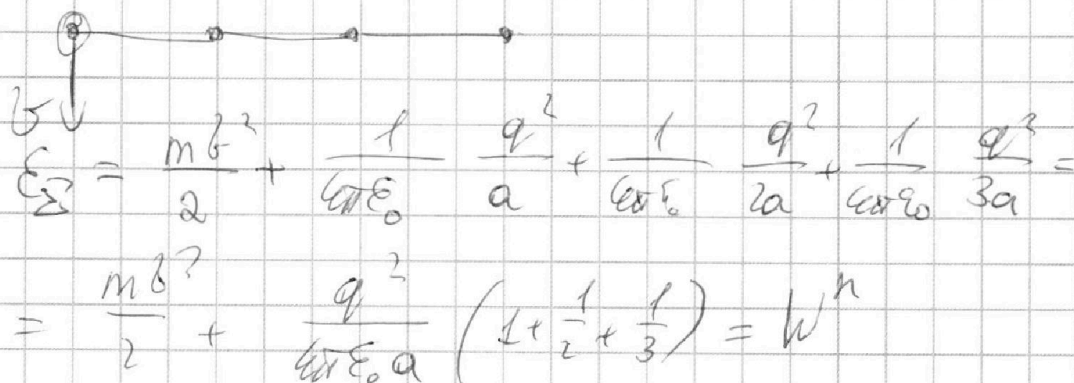 v
ε_Σ = mv²/2 + 1/(4πε₀) q²/a + 1/(4πε₀) q²/2a + 1/(4πε₀) q²/3a =
= mv²/2 + q²/(4πε₀a) (1 + 1/2 + 1/3) = Wⁿ